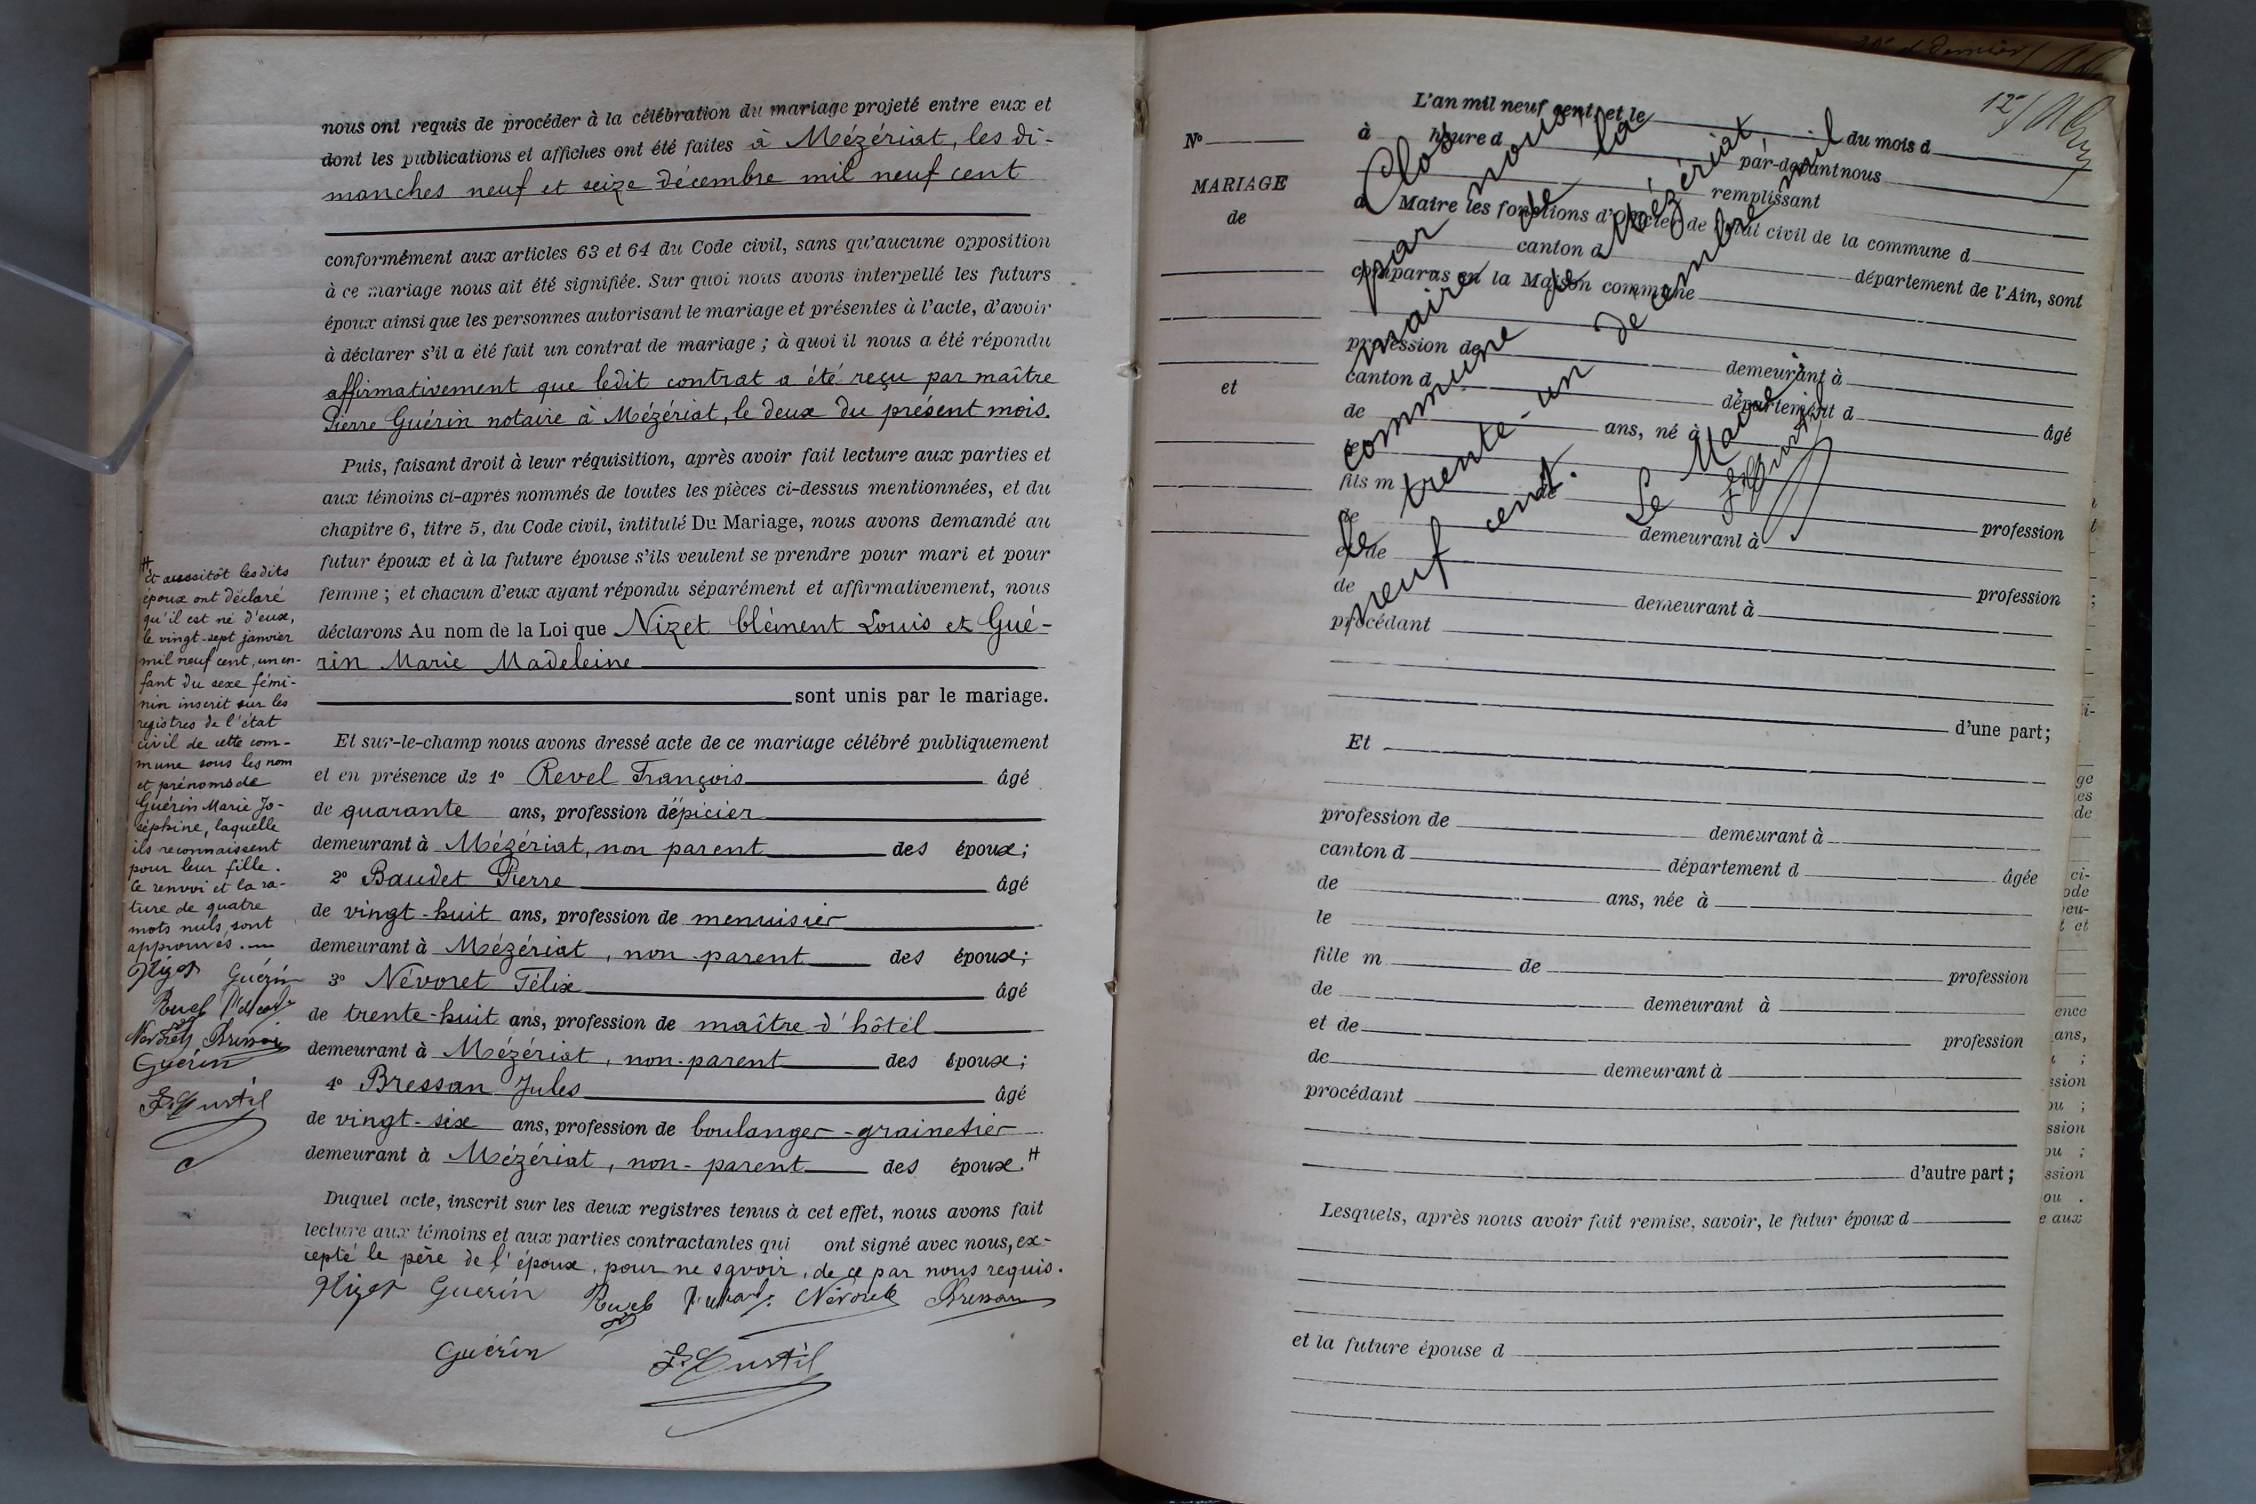 nous ont requis de procéder à la célébration du mariage projeté entre eux et
dont les publications et affiches ont été faites à Mézériat, les di-
manches neuf et seize décembre mil neuf cent
conformément aux articles 63 et 64 du Code civil, sans qu'aucune opposition
à ce mariage nous ait été signifiée. Sur quoi nous avons interpellé les futurs
époux ainsi que les personnes autorisant le mariage et présentes à l'acte, d'avoir
à déclarer s'il a été fait un contrat de mariage ; à quoi il nous a été répondu
affirmativement que ledit contrat a été reçu par maître
Pierre Guérin notaire à Mézériat, le deux du présent mois.
Puis, faisant droit à leur réquisition, après avoir fait lecture aux parties et
aux témoins ci-après nommés de toutes les pièces ci-dessus mentionnées, et du
chapitre 6, titre 5, du Code civil, intitulé Du Mariage, nous avons demandé au
futur époux et à la future épouse s'ils veulent se prendre pour mari et pour
femme ; et chacun d'eux ayant répondu séparément et affirmativement, nous
déclarons Au nom de la Loi que Nizet Clément Louis et Gué-
rin Marie Madeleine
sont unis par le mariage.
Et sur-le-champ nous avons dressé acte de ce mariage célébré publiquement
et en présence de 1° Revel François âgé
de quarante ans, profession d'épicier
demeurant à Mézériat, non parent des époux ;
2° Baudet Pierre âgé
de vingt-huit ans, profession de menuisier
demeurant à Mézériat, non-parent des époux ;
3° Névoret Félix âgé
de trente-huit ans, profession de maître-d'hôtel
demeurant à Mézériat, non-parent des époux ;
4° Bressan Jules âgé
de vingt-six ans, profession de boulanger-grainetier
demeurant à Mézériat, non-parent des époux. #
Duquel acte, inscrit sur les deux registres tenus à cet effet, nous avons fait
lecture aux témoins et aux parties contractantes qui ont signé avec nous, ex-
cepté le père de l'époux, pour ne savoir, de ce par nous requis.
Nizet Guérin Revel Névoret Bressan
Guérin
# Et aussitôt lesdits
époux ont déclaré
qu'il est né d'eux,
le vingt-sept janvier
mil neuf cent, un en-
fant du sexe fémi-
nin inscrit sur les
registres de l'état
civil de cette com-
mune sous les nom
et prénoms de
Guérin Marie Jo-
séphine, laquelle
ils reconnaissent
pour leur fille.
Ce renvoi et la ra-
ture de quatre
mots nuls, sont
approuvés.
Nizet Guérin
Revel
Névoret Bressan
Guérin
12e
N°
MARIAGE
de
et
L'an mil neuf cent, et le du mois d
à heure d par-devant nous
remplissant
d Maire les fonctions d'Officier de l'état civil de la commune d
canton d département de l'Ain, sont
comparus en la Maison commune
profession de demeurant à
canton d département d âgé
de ans, né à
le
fils m de profession
de demeurant à
et de profession
de demeurant à
procédant
d'une part ;
Clos par nous,
maire de la
commune de Mézériat,
le trente-un décembre mil
neuf cent.
Le Maire,
Et
profession de demeurant à
canton d département d âgée
de ans, née à
le
fille m de profession
de demeurant à
et de profession
de demeurant à
procédant
d'autre part ;
Lesquels, après nous avoir fait remise, savoir, le futur époux d
et la future épouse d